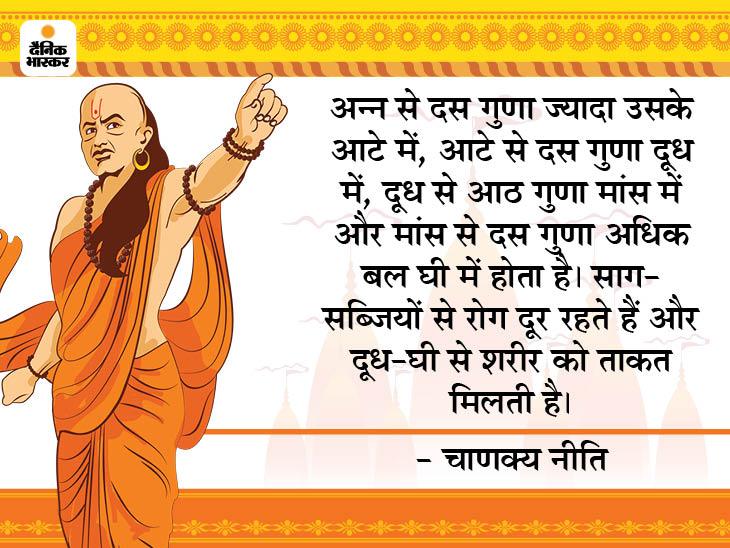 दैनिक
भास्कर
अन्न से दस गुणा ज्यादा उसके
आटे में, आटे से दस गुणा दूध
में, दूध से आठ गुणा मांस में
और मांस से दस गुणा अधिक
बल घी में होता है। साग-
सब्जियों से रोग दूर रहते हैं और
दूध-घी से शरीर को ताकत
मिलती है।
- चाणक्य नीति